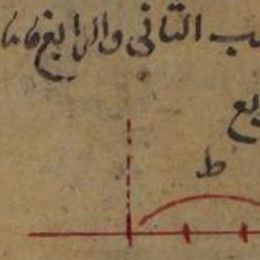 ب الثانى والرابع فاما
بع
ط